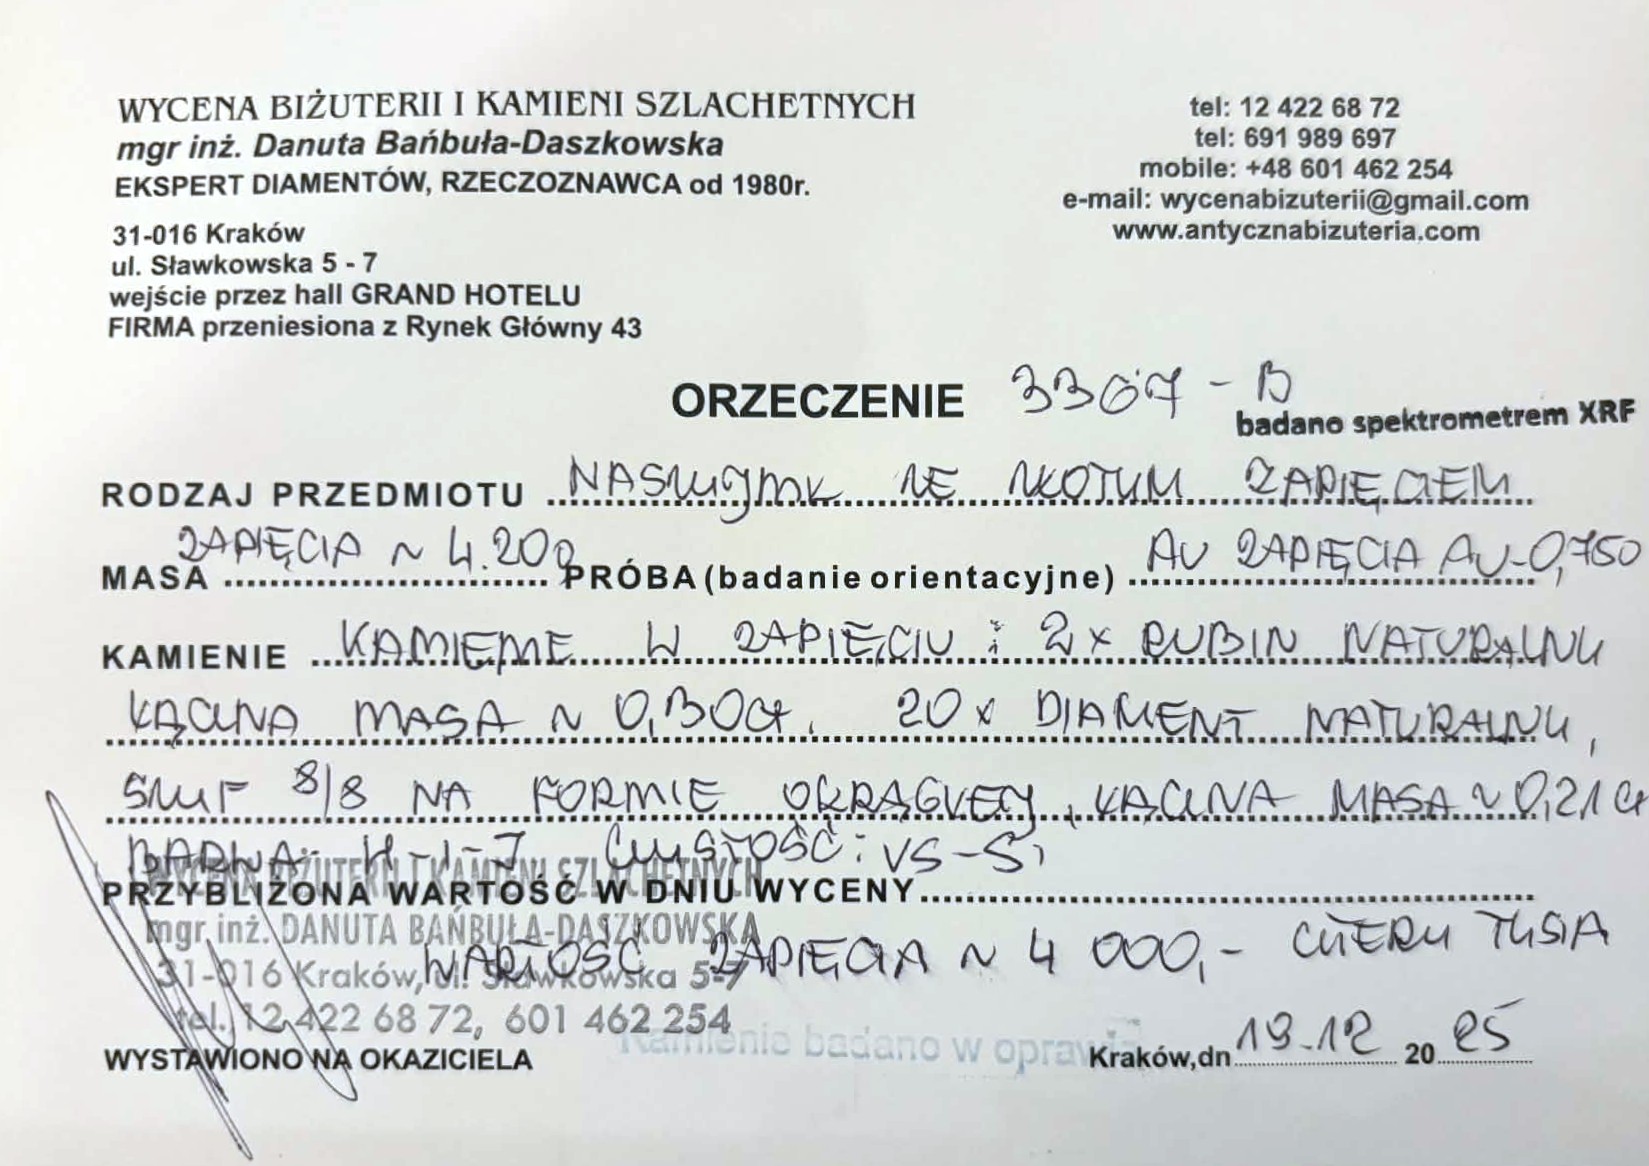 WYCENA BIŻUTERII I KAMIENI SZLACHETNYCH
mgr inż. Danuta Bańbuła-Daszkowska
EKSPERT DIAMENTÓW, RZECZOZNAWCA od 1980r.
31-016 Kraków
ul. Sławkowska 5 - 7
wejście przez hall GRAND HOTELU
FIRMA przeniesiona z Rynek Główny 43
tel: 12 422 68 72
tel: 691 989 697
mobile: +48 601 462 254
e-mail: wycenabizuterii@gmail.com
www.antycznabizuteria.com
ORZECZENIE 3367-B
badano spektrometrem XRF
RODZAJ PRZEDMIOTU NASZYJNIK ZE ZŁOTYM ZAPIĘCIEM
MASA ZAPIĘCIA ~ 4.20g PRÓBA (badanie orientacyjne) AU ZAPIĘCIA AU-0,750
KAMIENIE KAMIENIE W ZAPIĘCIU : 2x RUBIN NATURALNY
ŁĄCZNA MASA ~ 0,30ct. 20 x DIAMENT NATURALNY,
SZLIF 8/8 NA FORMIE OKRĄGŁEJ, ŁĄCZNA MASA ~ 0,21 ct
BARWA: H-I-J CZYSTOŚĆ: VS-SI
PRZYBLIŻONA WARTOŚĆ W DNIU WYCENY
WARTOŚĆ ZAPIĘCIA ~ 4 000,- CZTERY TYSIĄ
WYCENA BIŻUTERII I KAMIENI SZLACHETNYCH
mgr inż. DANUTA BAŃBUŁA-DASZKOWSKA
31-016 Kraków, ul. Sławkowska 5-7
tel. 12 422 68 72, 601 462 254
Kamienie badano w oprawie
WYSTAWIONO NA OKAZICIELA
Kraków,dn 19.12 20 25